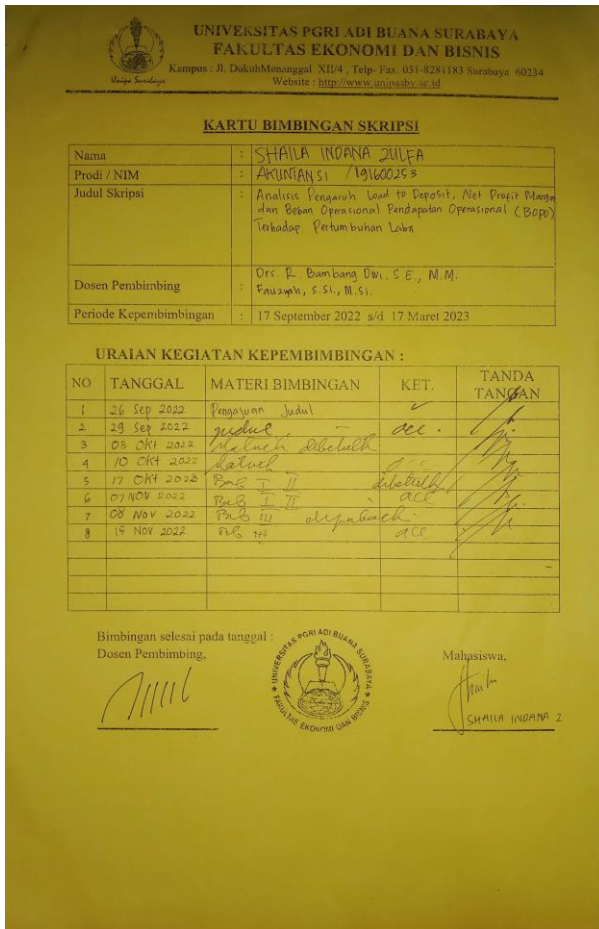 UNIVERSITAS PGRI ADI BUANA SURABAYA
FAKULTAS EKONOMI DAN BISNIS
Kampus : Jl. DukuhMenanggal XII/4 , Telp- Fax. 031-8281183 Surabaya 60234
Website : http://www.unipasby.ac.id
Unipa Surabaya
KARTU BIMBINGAN SKRIPSI
Nama : SHAILA INDANA ZULFA
Prodi / NIM : AKUNTANSI / 191600253
Judul Skripsi : Analisis Pengaruh Load to Deposit, Net Profit Margin
dan Beban Operasional Pendapatan Operasional (BOPO)
Terhadap Pertumbuhan Laba
Dosen Pembimbing : Drs. R. Bambang Dwi, S.E., M.M.
Fauziyah, S.Si., M.Si.
Periode Kepembimbingan : 17 September 2022 s/d 17 Maret 2023
URAIAN KEGIATAN KEPEMBIMBINGAN :
NO TANGGAL MATERI BIMBINGAN KET. TANDA TANGAN
1 26 Sep 2022 Pengajuan Judul
2 29 Sep 2022 Judul acc.
3 03 Okt 2022
4 10 Okt 2022
5 17 Okt 2022 Bab I II
6 07 NOV 2022 Bab I II acc
7 08 NOV 2022 Bab III
8 15 NOV 2022 Bab III acc
Bimbingan selesai pada tanggal :
Dosen Pembimbing,
Mahasiswa,
UNIVERSITAS PGRI ADI BUANA SURABAYA
FAKULTAS EKONOMI DAN BISNIS
SHAILA INDANA Z